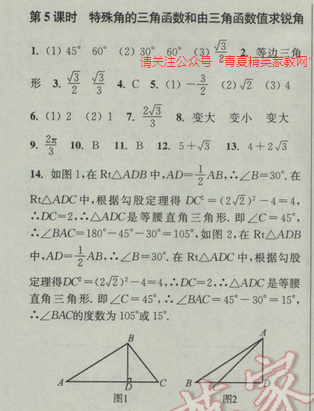 第5课时 特殊角的三角函数和由三角函数值求锐角
1. (1)45° 60° (2)30° 60° (3)√3/2 2. 等边三角
请关注公众号 "青夏精英家教网"
形 3. √3/2 √3/3 4. C 5. (1)-3/2 (2)√2 (3)4
6. (1)2 (2)1 7. 2√3/3 8. 变大 变小 变大
9. 2π/3 10. B 11. B 12. 5+√3 13. 4+2√3
14. 如图1,在Rt△ADB中,AD=1/2AB,∴∠B=30°.在
Rt△ADC中,根据勾股定理得DC²=(2√2)²-4=4,
∴DC=2,∴△ADC是等腰直角三角形.即∠C=45°,
∴∠BAC=180°-45°-30°=105°,如图2,在Rt△ADB
中,AD=1/2AB,∴∠B=30°.在Rt△ADC中,根据勾股
定理得DC²=(2√2)²-4=4,∴DC=2,∴△ADC是等腰
直角三角形.即∠C=45°,∴∠BAC=45°-30°=15°,
∴∠BAC的度数为105°或15°.
B
A D C
图1
A
B C D
图2